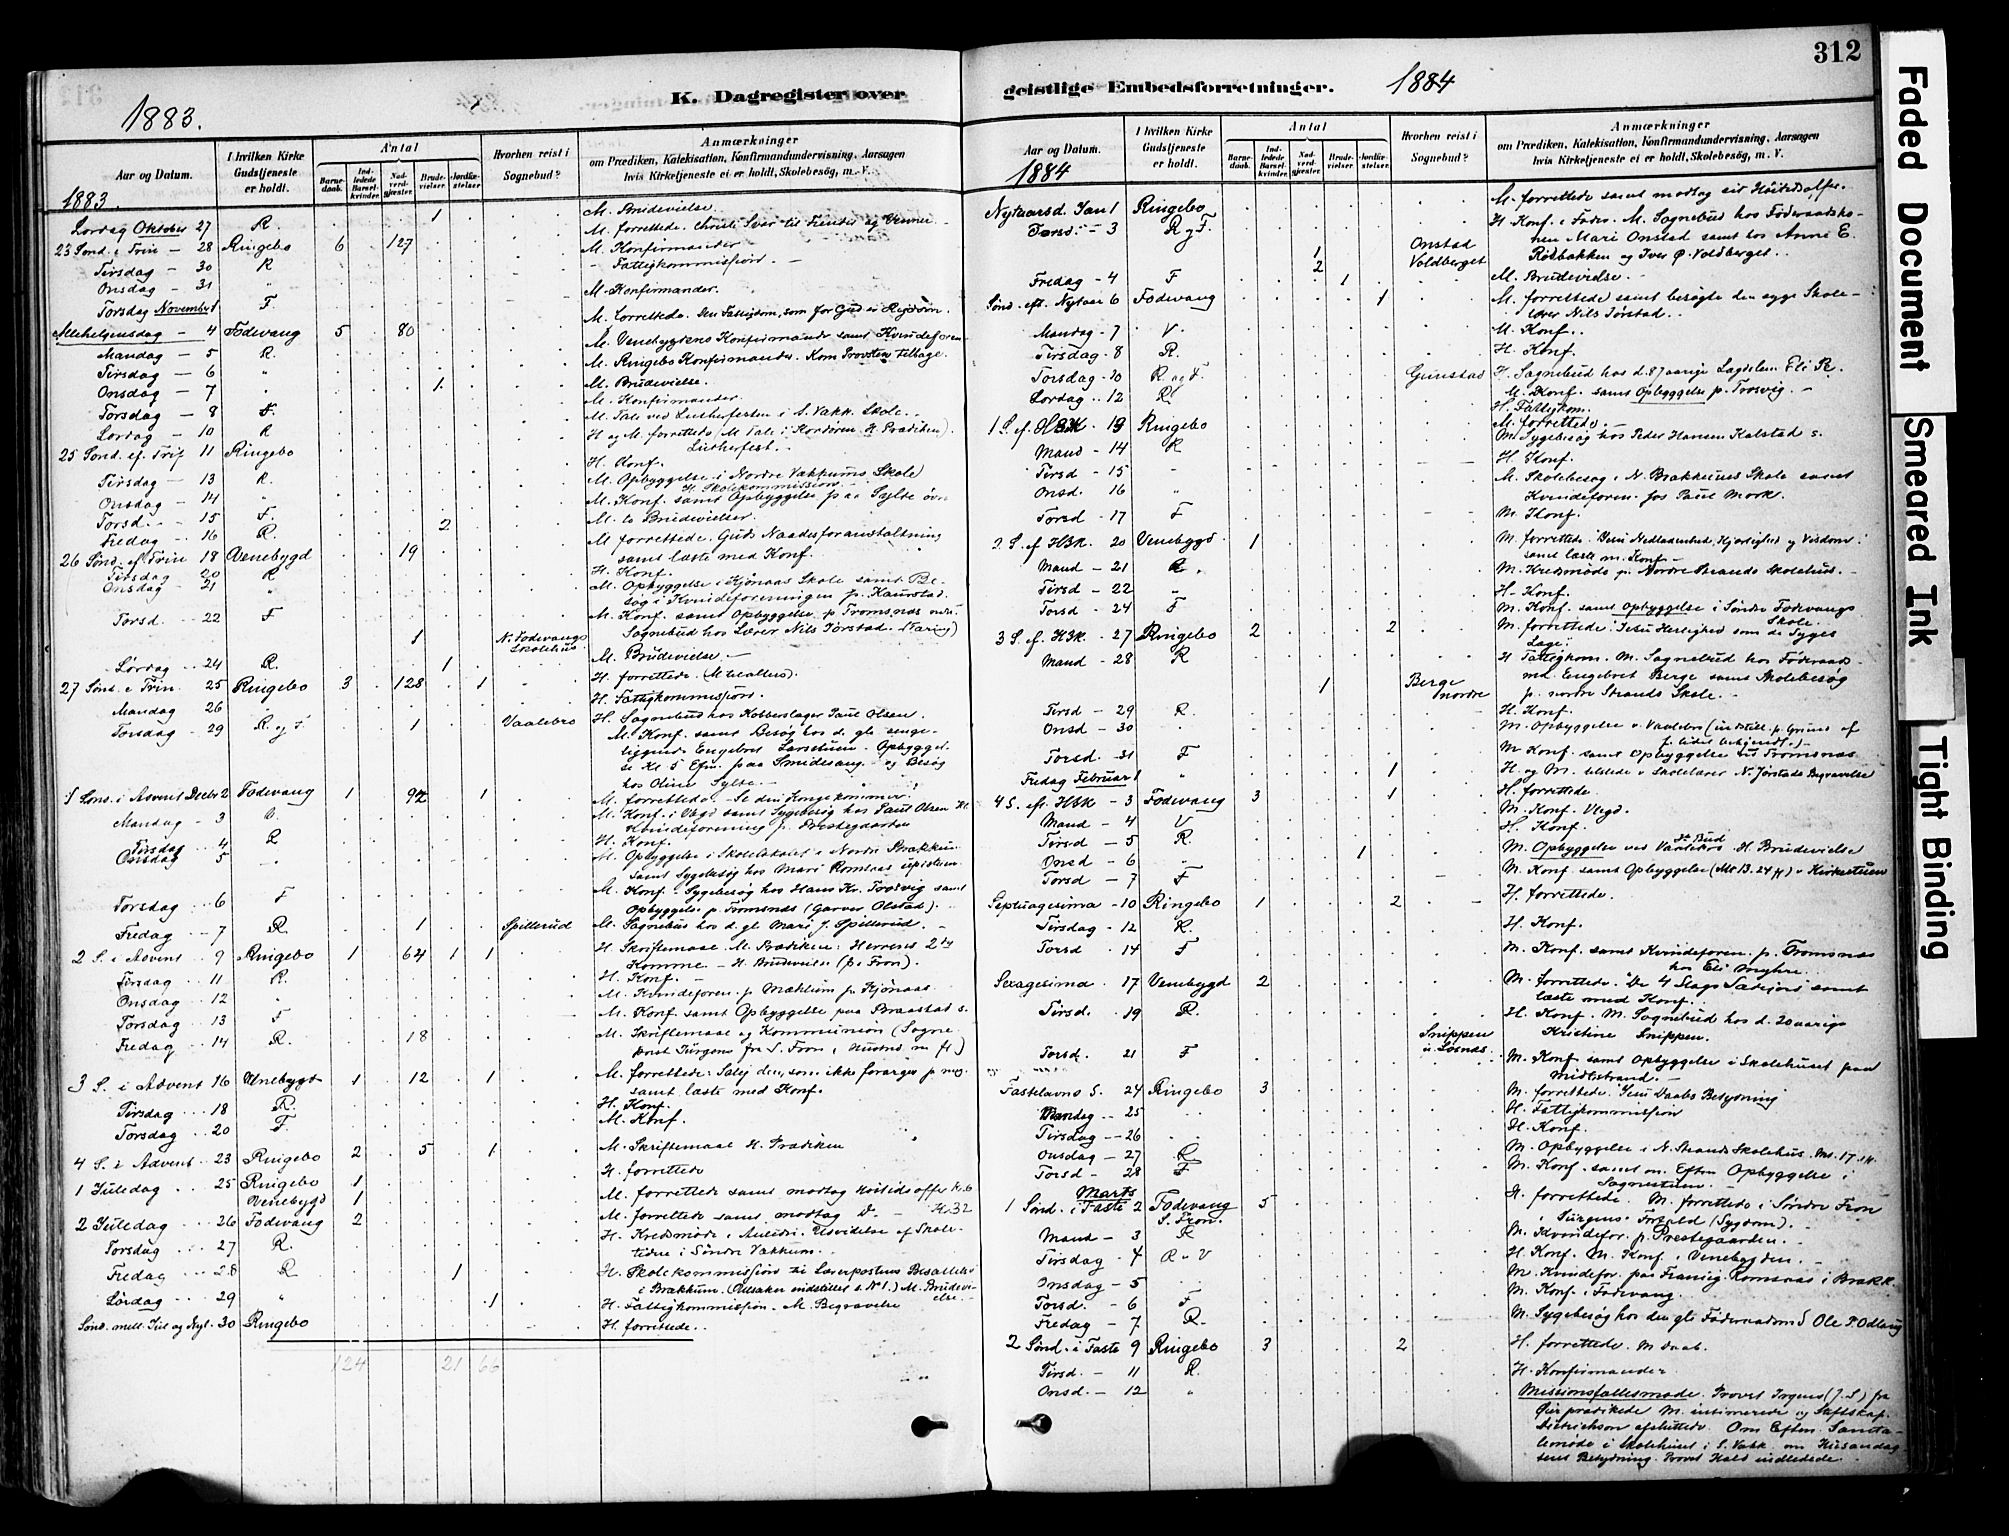 312
K. Dagregister over
geistlige Embedsforretninger.
1883.
1884
Aar og Datum.
I hvilken Kirke Gudstjeneste er holdt.
Antal
Barnedaab.
Indledede Barselkvinder.
Nadverdgjæster.
Brudevielser.
Jordfæstelser.
Hvorhen reist i Sognebud?
Anmærkninger
om Prædiken, Katekisation, Konfirmandundervisning, Aarsagen
hvis Kirketjeneste ei er holdt, Skolebesøg, m. V.
1883.
Lørdag Oktober 27 R. 1 M. Brudevielse.
23 Sønd. e Trin - 28 Ringebo 6 127 M. forrettede. Christi Svar til Fiender og Venner
Tirsdag - 30 R M. Konfirmander
Onsdag - 31 " Fattigkommission. -
Torsdag November 1 F. M. Konfirmander.
Allehelgensdag - 4 Fodevang 5 80 M. forrettede. Den Fattigdom, som for Gud er Rigdom.
Mandag - 5 R. M. Venebygdens Konfirmander samt Kvindeforen
Tirsdag - 6 " M. Ringebo Konfirmander. Kom Provsten tilbage.
Onsdag - 7 " 1 M. Brudevielse.
Torsdag - 8 F. M. Konfirmander
Lørdag - 10 R M. Tale ved Lutherfesten i S. Vækk. Skole.
25 Sønd. ef. Trif 11 Ringebo H og M. forrettede (M Tale i Kordøren. H. Prædiken).
Lutherfest.
Tirsdag - 13 R. H. Konf.
Onsdag - 14 " M. Opbyggelse i Nordre Vækkums Skole
H. Skolekommission -
Torsd. - 15 F. M. Konf. samt Opbyggelse paa Sylte øvre
Fredag - 16 R. 2 M. to Brudevielser.
26 Sønd. ef Trin 18 Venebygd 19 M forrettede. Guds Naadesforanstaltning
samt læste med Konf.
Tirsdag 20 R H. Konf.
Onsdag 21 " M. Opbyggelse i Kjønaas Skole samt Besøg i Kvindeforeningen p. Kaurstad
Torsd. 22 F M. Konf. samt Opbyggelse p. Tromsnæs
1 N. Fodevangs Skolehus Sognebud hos Lærer Nils Jørstad.
Lørdag 24 R. 1 M. Brudevielse -
27 Sønd. e Trin. 25 Ringebo 3 128 1 H. forrettede.
Mandag 26 " H. Fattigkommission.
Torsdag 29 R og F 1 Vaalebro H. Sognebud hos Kobberslager Paul Olsen.
M. Konf. samt Besøg hos d. gle
Engebret Opbyggelse Kl 5 Efm. paa og Besøg
hos Oline Sylte. -
1 Sønd. i Advent Decbr 2 Fodevang 1 92 1 M. forrettede. Se din Konge kommer!
Mandag - 3 V. M. Konf. i Vbgd samt Sygebesøg hos Paul Olsen
Kvindeforening p. Prestegaarden
Tirsdag 4 R H. Konf.
Onsdag 5 - M. Opbyggelse i Skolelokalet i Nordre Brækkum
samt Sygebesøg hos Mari Romsaas
Torsdag 6 F M. Konf. Sygebesøg hos Hans Kr. Trosvig samt
Opbyggelse p. Tromsnæs (Garver Olstad).
Fredag - 7 R. 1 Spillerud M. Sognebud hos d. gl Mari J. Spillerud. -
2 S. i Advent 9 Ringebo 1 64 1 1 H. Skriftemaal. M. Prædiken: Herrens 2
Komme. - H. Brudevielse (p. Fron).
Tirsdag 11 R. H. Konf. -
Onsdag 12 " M. Kvindeforen. p. Mæhlum p. Kjønaas
Torsdag 13 F M. Konf samt Opbyggelse paa Braastad s.
Fredag 14 R. 18 M. Skriftemaal og Kommunion (Sogneprest Jürgens fra S. Fron
3 S. i Advent 16 Venebygd 1 12 1 M. forrettede: Salig den, som ikke forarges p. mig.
samt læste med Konf.
Tirsdag 18 R. H. Konf.
Torsdag 20 F. M. Konf.
4 S. i Advent 23 Ringebo 2 5 1 M. Skriftemaal H. Prædiken
1 Juledag 25 Ringebo 1 H. forrettede
Venebygd 1 M. forrettede samt modtog Høitidsoffer kr. 6
2 Juledag 26 Fodevang 2 M. forrettede samt modtog D. - Kr. 32
Torsdag 27 R. H. Kredsmøde. Udvidelse af Skoletiden i Søndre Vækkum.
Fredag 28 R 1 H. Skolekommission Lærerpostens Besættelse
i Brækkum. M. Brudevielse. -
Lørdag 29 " 1 H. Fattigkommission. M. Begravelse
Sønd. mell. Jul og Nyt. 30 Ringebo H. forrettede.
124 21 66
Aar og Datum.
1884
I hvilken Kirke Gudstjeneste er holdt.
Antal
Barnedaab.
Indledede Barselkvinder.
Nadverdgjæster.
Brudevielser.
Jordfæstelser.
Hvorhen reist i Sognebud?
Anmærkninger
om Prædiken, Katekisation, Konfirmandundervisning, Aarsagen
hvis Kirketjeneste ei er holdt, Skolebesøg, m. V.
Nytaarsd. Jan 1 Ringebo M. forrettede samt modtog sit Høitidsoffer.
Torsd. - 3 R og F. 1 Onstad H. Konf. i Fodev. M. Sognebud hos Føderaadskonen Mari Onstad samt hos Anne E.
2 Voldberget Rødbakken og Iver Ø. Voldberget.
Fredag - 4 F 1 M. Brudevielse. -
Sønd. eft. Nytaar 6 Fodevang 1 M. forrettede samt besøgte den syge Skolelærer Nils Jørstad.
Mandag - 7 V. M. Konf.
Tirsdag - 8 R. H. Konf.
Torsdag - 10 R. og F. Grinstad H. Sognebud hos d. 87 aarige Lægdslem Eli
M. Konf. samt Opbyggelse p. Trosvig. -
Lørdag - 12 R H. Fattigkom.
1 S. ef. H3K 13 Ringebo M. forrettede -
Mand - 14 R M. Sygebesøg hos Peder Hansen Kalstad s.
Tirsd - 15 - H. Konf.
Onsd. 16 " M. Skolebesøg i N. Brækkums Skole samt
Kvindeforen. hos Paul Mork.
Torsd - 17 F M. Konf.
2 S. ef H3K. 20 Venebygd. 1 M. forrettede. Nedladenhed, Kjærlighed og Visdom.
samt læste m. Konf.
Mand - 21 R. M. Kredsmøde p. Nordre Strands Skolehus. -
Tirsd - 22 " H. Konf.
Torsd - 24 F M. Konf. samt Opbyggelse i Søndre Fodevangs
Skole.
3 S. ef. H3K. - 27 Ringebo 2 2 M. forrettede. Jesu Herlighed som de Syges
Læge.
Mand - 28 R 1 Berge nordre H Fattigkom. M. Sognebud hos Føderaadsmd. Engebret Berge samt Skolebesøg
p. nordre Strands Skole. -
Tirsd - 29 R. H. Konf.
Onsd - 30 M. Opbyggelse v. Vaalebro (indstill. p. Grund af
f. lidet bekjendt) -
Torsd. - 31 F M Konf. samt Opbyggelse Tromsnæs
Fredag Februar 1 " 1 H. og M. tilstede v. Skolelærer N. Jørstads Begravelse
4 S. eft. H3K - 3 Fodevang 3 1 H. forrettede.
Mand - 4 V M. Konf. Vbgd.
Tirsd - 5 R. H. Konf.
Onsd - 6 " 1 M. Opbyggelse ved Vaalebro. H. Brudevielse
Torsd - 7 F M. Konf samt Opbyggelse (Mt 13. 24 ff) v Kirkestuen
Septuagesima - 10 Ringebo 1 2 H. forrettede.
Tirsdag - 12 R. H. Konf.
Torsd - 14 F M. Konf. samt Kvindeforen. p. Tromsnæs
hos Eli Myhre.
Sexagesima 17 Venebygd 2 M. forrettede. De 4 Slags Sædejord samt
læste med Konf.
Tirsd. 19 R. Snippen i Løsnæs H. Konf. M. Sognebud hos d. 20 aarige
Kristine Snippen.
Torsd. 21 F M. Konf samt Opbyggelse i Skolehuset paa
Midtstrand. -
Fastelavns S. 24 Ringebo 3 M. forrettede. Jesu Daabs Betydning
Mandag - 25 H. Fattigkommission
Tirsdag - 26 H. Konf.
Onsdag - 27 R M. Opbyggelse i N. Strands Skolehus. Mr. 17.14.
Torsd - 28 F M. Konf. samt om Eftm Opbyggelse i
Sognestuen. -
Marts
1 Sønd. i Faste 2 Fodevang 5 H. forrettede. M. forrettede i Søndre Fron
S. Fron. i Jürgens Forfald (Sygdom).
Mand - 3 R M. Kvindefor. p. Prestegaarden. -
Tirsdag - 4 R. V H. Konf. M. Konf. i Venebygden. -
Onsdag - 5 M. Kvindefor. paa Romsaas i Brækk.
Torsd. - 6 F M. Konf. i Fodevang.
Fredag - 7 R. M. Sygebesøg hos den gle Føderaadsmd Ole P. Odlaug
2 Sønd. i Faste 9 Ringebo 3 2 H. forrettede. M Daab.
Tirsd. - 11 R. H. Konfirmander
Onsd. - 12 " Missionsfællesmøde. Provst Irgens (J. S.) fra
Øier prædikede M. intimerede og Stiftskap.
Dietrichson afsluttede. Om Eftm. Santalmøde i Skolehuset i S. Vækk. om Husandagtens Betydning. Provst Hald indledede.
Faded Document
Smeared Ink
Tight Binding